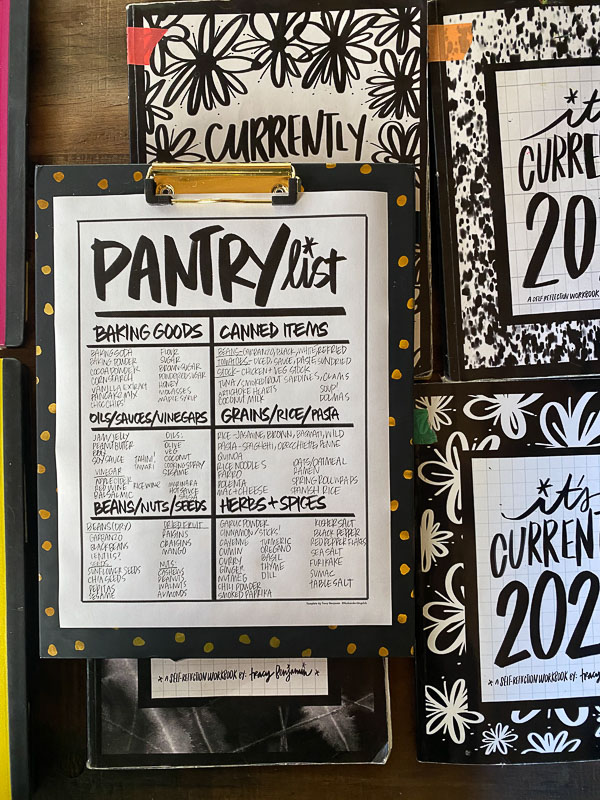 CURRENTLY
PANTRY list
BAKING GOODS
BAKING SODA
BAKING POWDER
COCOA POWDER
CORNSTARCH
VANILLA EXTRACT
PANCAKE MIX
CHOC CHIPS
FLOUR
SUGAR
BROWN SUGAR
POWDERED SUGAR
HONEY
MOLASSES
MAPLE SYRUP
CANNED ITEMS
BEANS-GARBANZO, BLACK, WHITE, REFRIED
TOMATOES-DICED, SAUCE, PASTE, SUNDRIED
STOCK-CHICKEN + VEG STOCK
TUNA, SMOKED TROUT, SARDINES, CLAMS
ARTICHOKE HEARTS
COCONUT MILK
SOUP
DOLMAS
OILS/SAUCES/VINEGARS
JAM/JELLY
PEANUT BUTTER
BBQ
SOY SAUCE
TAHINI
TAMARI
VINEGAR
APPLE CIDER
RED WINE
BALSAMIC
RICE WINE
OILS:
OLIVE
VEG
COCONUT
COOKING SPRAY
SESAME
MARINARA
HOT SAUCE
GRAINS/RICE/PASTA
RICE-JASMINE, BROWN, BASMATI, WILD
PASTA-SPAGHETTI, ORECCHIETTE, PENNE
QUINOA
RICE NOODLES
FARRO
POLENTA
MAC+CHEESE
OATS/OATMEAL
RAMEN
SPRING ROLL WRAPS
SPANISH RICE
BEANS/NUTS/SEEDS
BEANS (DRY)
GARBANZO
BLACK BEANS
LENTILS
SEEDS
SUNFLOWER SEEDS
CHIA SEEDS
PEPITAS
SESAME
DRIED FRUIT
RAISINS
CRAISINS
MANGO
NUTS:
CASHEWS
PEANUTS
WALNUTS
ALMONDS
HERBS + SPICES
GARLIC POWDER
CINNAMON/STICKS
CAYENNE
CUMIN
CURRY
GINGER
NUTMEG
CHILI POWDER
SMOKED PAPRIKA
TURMERIC
OREGANO
BASIL
THYME
DILL
KOSHER SALT
BLACK PEPPER
RED PEPPER FLAKES
SEA SALT
FURIKAKE
SUMAC
TABLE SALT
A SELF-REFLECTION WORKBOOK BY: tracy Benjamin
it's
CURRE
20
A SELF REFLECTION WORKBOOK
it's
CURRENT
202
A SELF-REFLECTION WORKBOOK BY: tracy Benjam